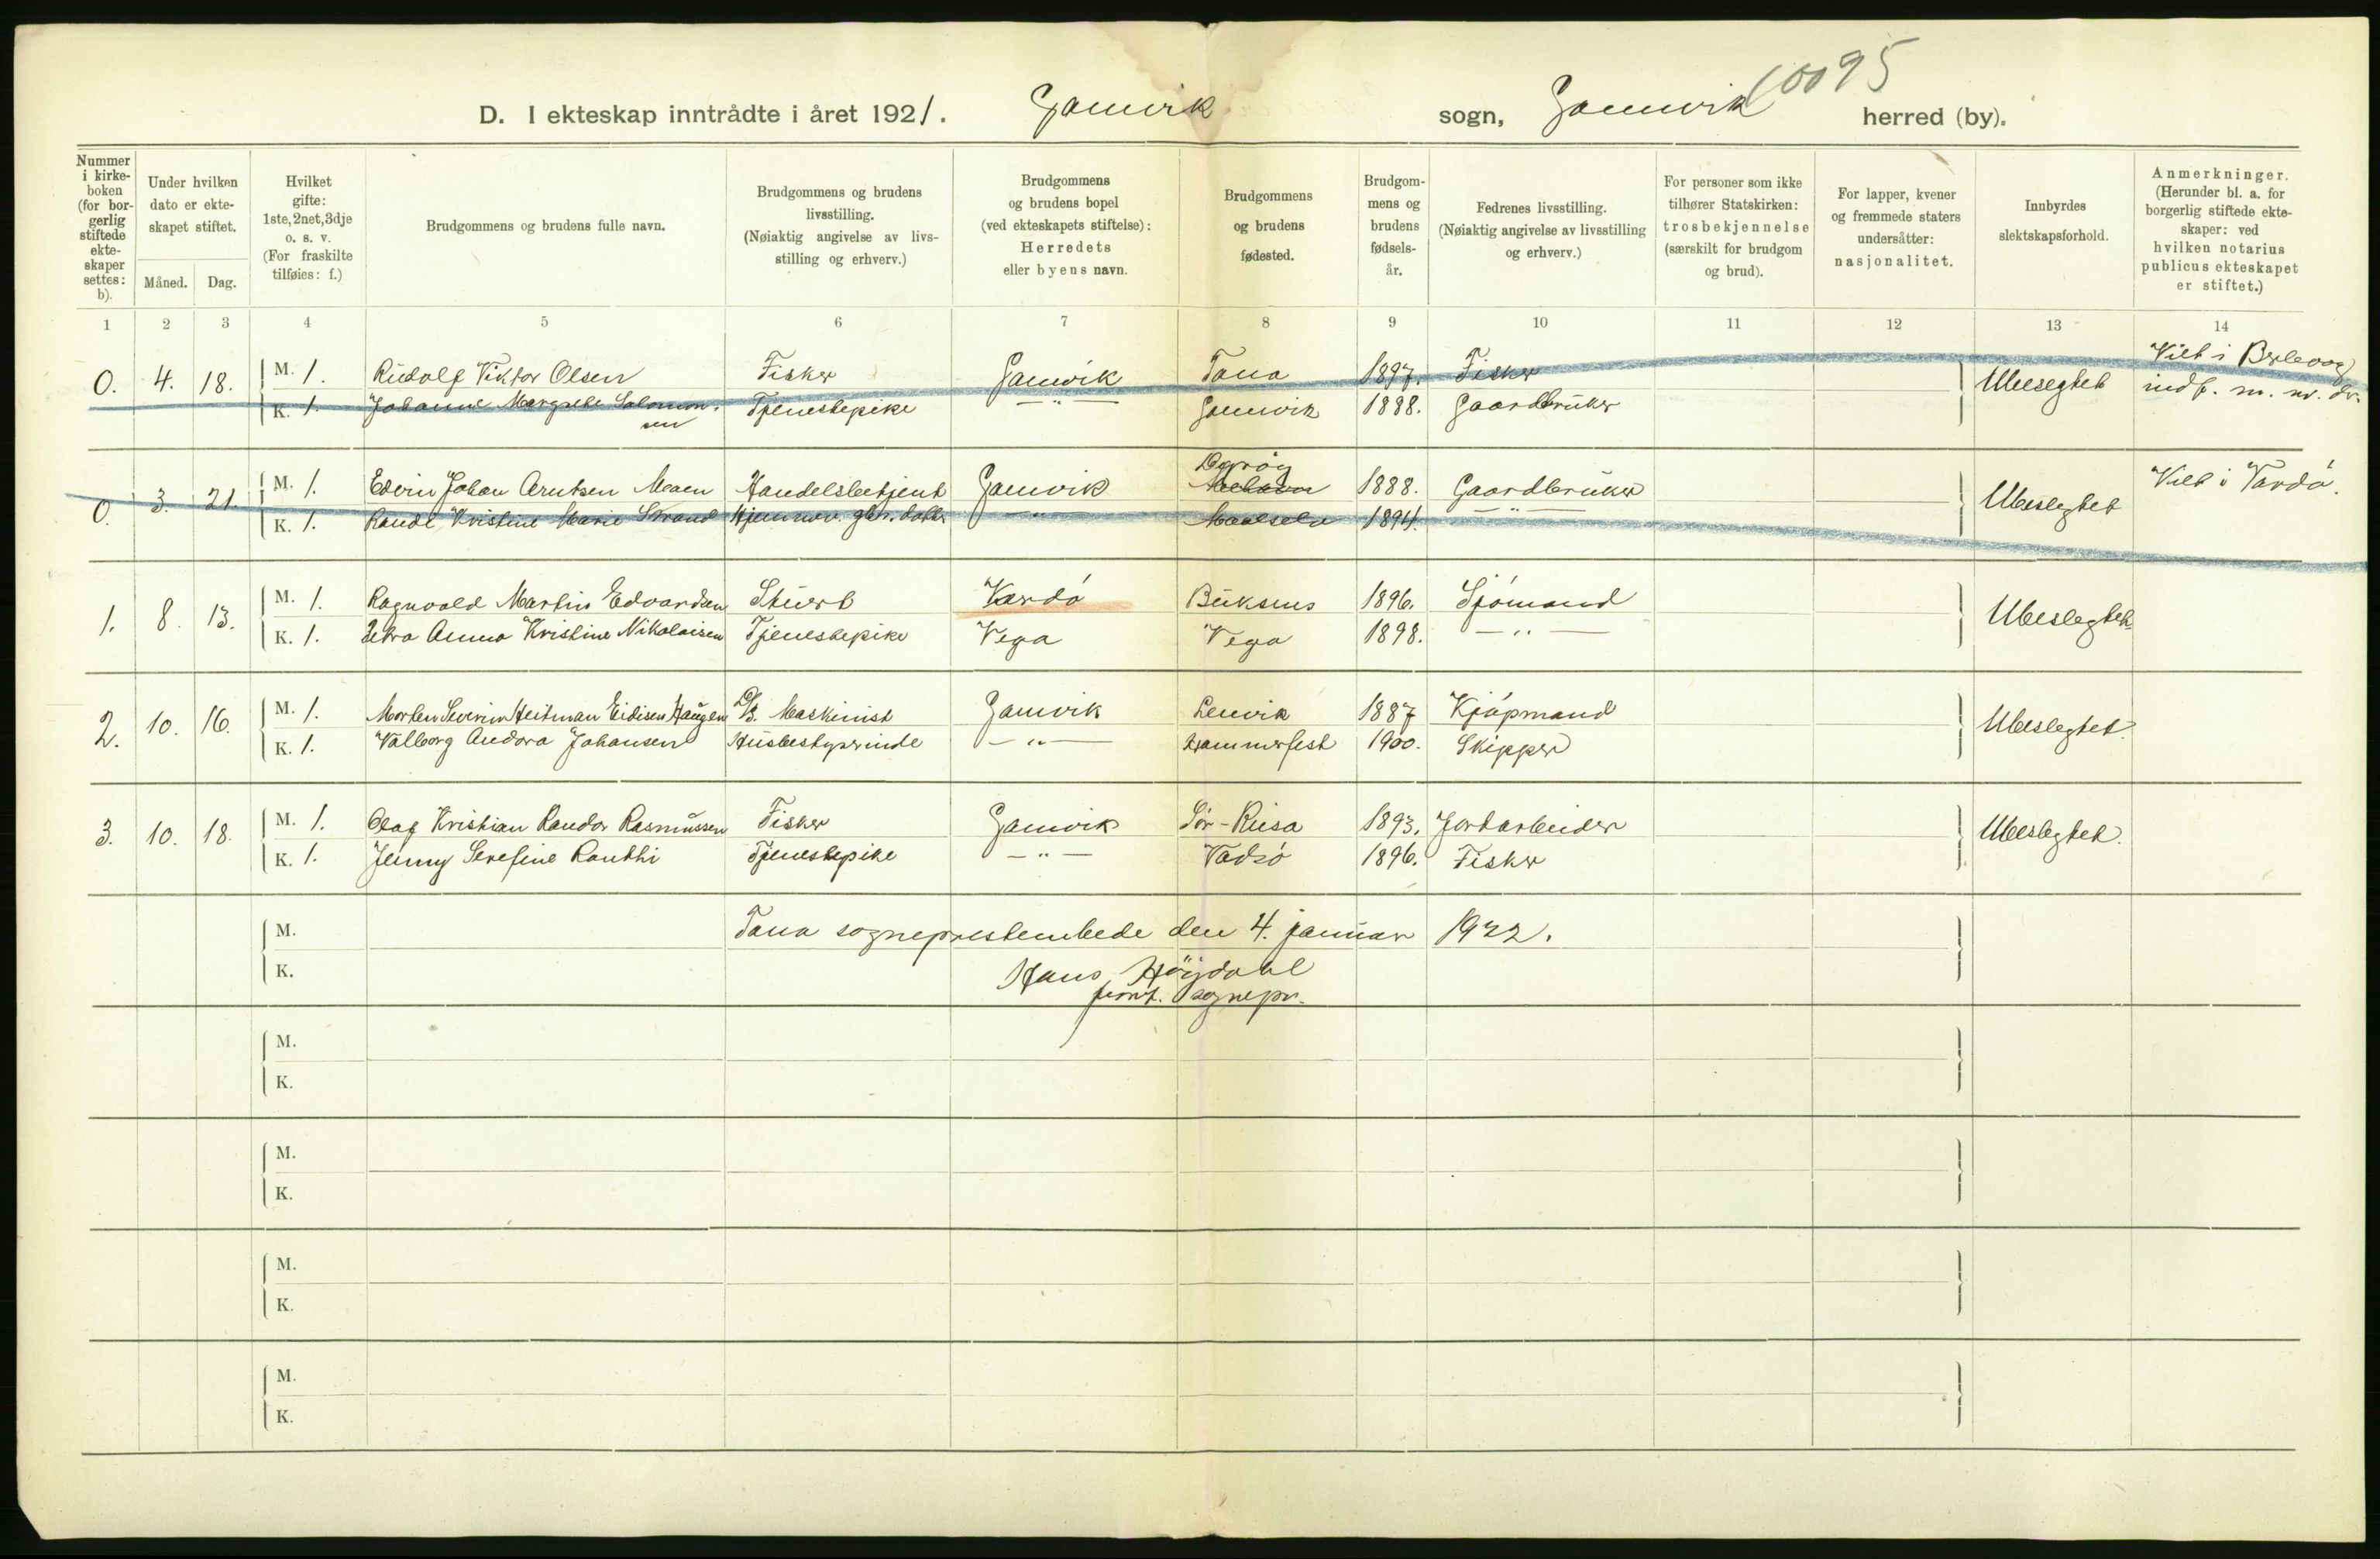 10095
D. I ekteskap inntrådte i året 1921. Gamvik sogn, Gamvik herred (by).
Nummer i kirkeboken (for borgerlig stiftede ekteskaper settes: b).
Under hvilken dato er ekteskapet stiftet.
Måned. Dag.
Hvilket gifte: 1ste, 2net, 3dje o. s. v. (For fraskilte tilføies: f.)
Brudgommens og brudens fulle navn.
Brudgommens og brudens livsstilling. (Nøiaktig angivelse av livsstilling og erhverv.)
Brudgommens og brudens bopel (ved ekteskapets stiftelse): Herredets eller byens navn.
Brudgommens og brudens fødested.
Brudgommens og brudens fødselsår.
Fedrenes livsstilling. (Nøiaktig angivelse av livsstilling og erhverv.)
For personer som ikke tilhører Statskirken: trosbekjennelse (særskilt for brudgom og brud).
For lapper, kvener og fremmede staters undersåtter: nasjonalitet.
Innbyrdes slektskapsforhold.
Anmerkninger. (Herunder bl. a. for borgerlig stiftede ekteskaper: ved hvilken notarius publicus ekteskapet er stiftet.)
1 2 3 4 5 6 7 8 9 10 11 12 13 14
0. 4. 18. M. 1. Rudolf Viktor Olsen Fisker Gamvik Tana 1897. Fisker Ubesegtet Viet i Berlevog
K. 1. Johanne Margrethe Salomonsen Tjenestepike — " — Gamvik 1898. Gaardbruker indf. m. nr. der.
0. 3. 21. M. 1. Edvin Johan Arntsen Moen Handelsbetjent Gamvik Dyrøy 1888. Gaardbruker Ubeslegtet Viet i Vardö.
K. 1. Randi Kristine Marie Strand Hjemmev. gbr. datter — " — Maalselv 1894. — " —
1. 8. 13. M. 1. Ragnvald Martin Edvardsen Stuert Vardö Buksnes 1896. Sjömand Ubeslegtet
K. 1. Petra Anna Kristine Nikolaisen Tjenestepike Vega Vega 1898. — " —
2. 10. 16. M. 1. Morten Severin Heitman Eidisen Haugen D/S. Maskinist Gamvik Lenvik 1887 Kjöpmand Ubeslegtet.
K. 1. Valborg Andora Johansen Husbestyrerinde — " — Hammerfest 1900. Skipper
3. 10. 18. M. 1. Olaf Kristian Randor Rasmussen Fisker Gamvik Sör-Reisa 1893. Jordarbeider Ubeslegtet.
K. 1. Jenny Serefine Ranthi Tjenestepike — " — Vadsö 1896. Fisker
M. Tana sogneprestembede den 4. januar 1922.
K. Hans Höydahl
sognepr.
M.
K.
M.
K.
M.
K.
M.
K.